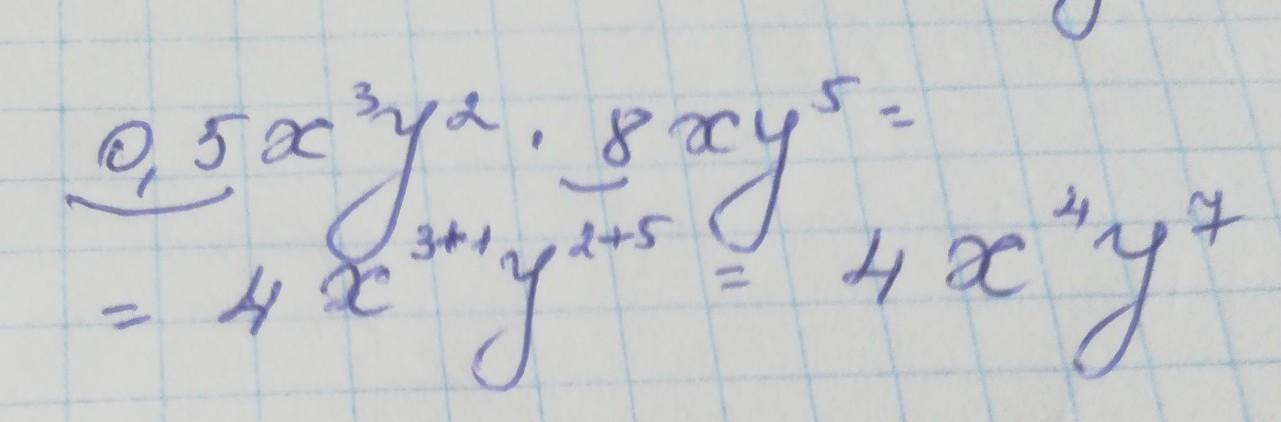 0,5x³y² · 8xy⁵ =
= 4x³⁺¹y²⁺⁵ = 4x⁴y⁷